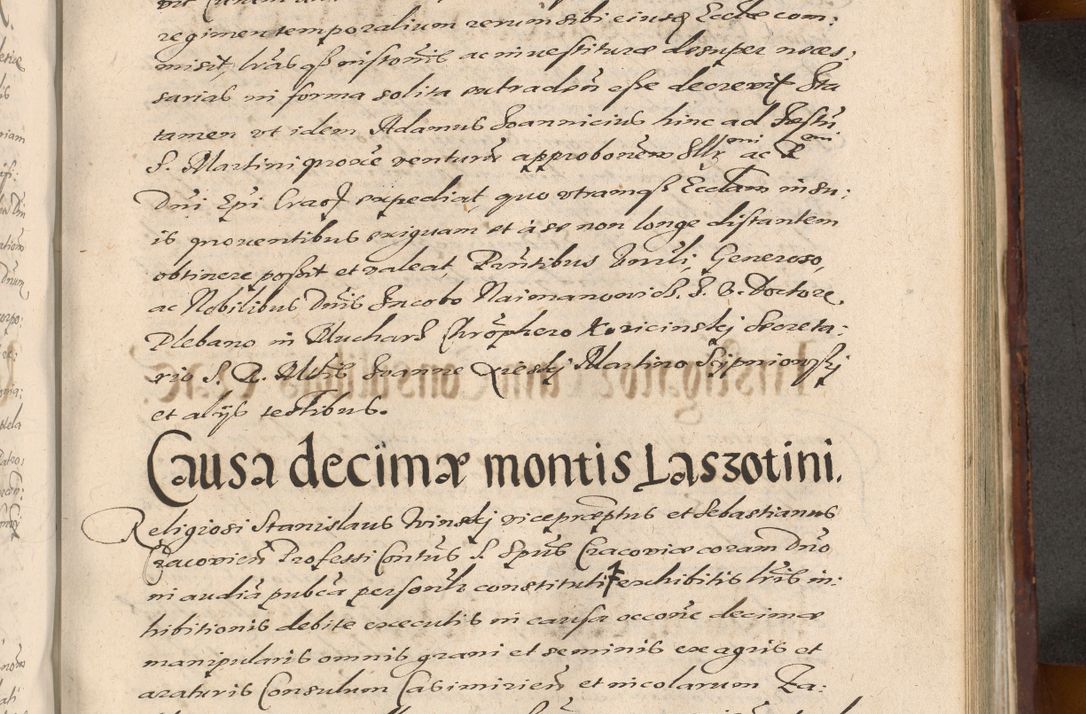 regimen temporalium rerum sibi eiusq Ecclæ com:
misit, lras qs instonis ac investituræ desuper neces:
sarias in forma solita extraden esse decrevit Sta
tamen vt idem Adamus Joannicius hinc ad festu
S. Martini proxe venturu approbonem Illmi ac Rmi
Dni Epi Crac expediat quo vtramqs Ecclam in su:
is proventibus exiguam et à se non longe distantem
obtinere possit et valeat Pntibus Vnrli, Generoso,
ac Nobilibus Dnis Jacobo Naimanowicz. J. V. Doctore,
Plebano in Muchars Chrophero Koricinskj Secreta:
rio S. R. Mtis Joanne Rieskj Martino Scipniowskj
et alijs testibus.
Causa decimæ montis Laszotini.
Religiosi Stanislaus Winskj vicepræptus et Sebastianus
Cracovien Professi Contus S. Spus Cracoviæ coram Dno
ni audia pubca personlr constituti exhibitis lris in:
hibitionis debite executis in causa occone decimæ
manipularis omnis grani et seminis ex agris et
araturis Consulum Casimirien et incolarum Za: